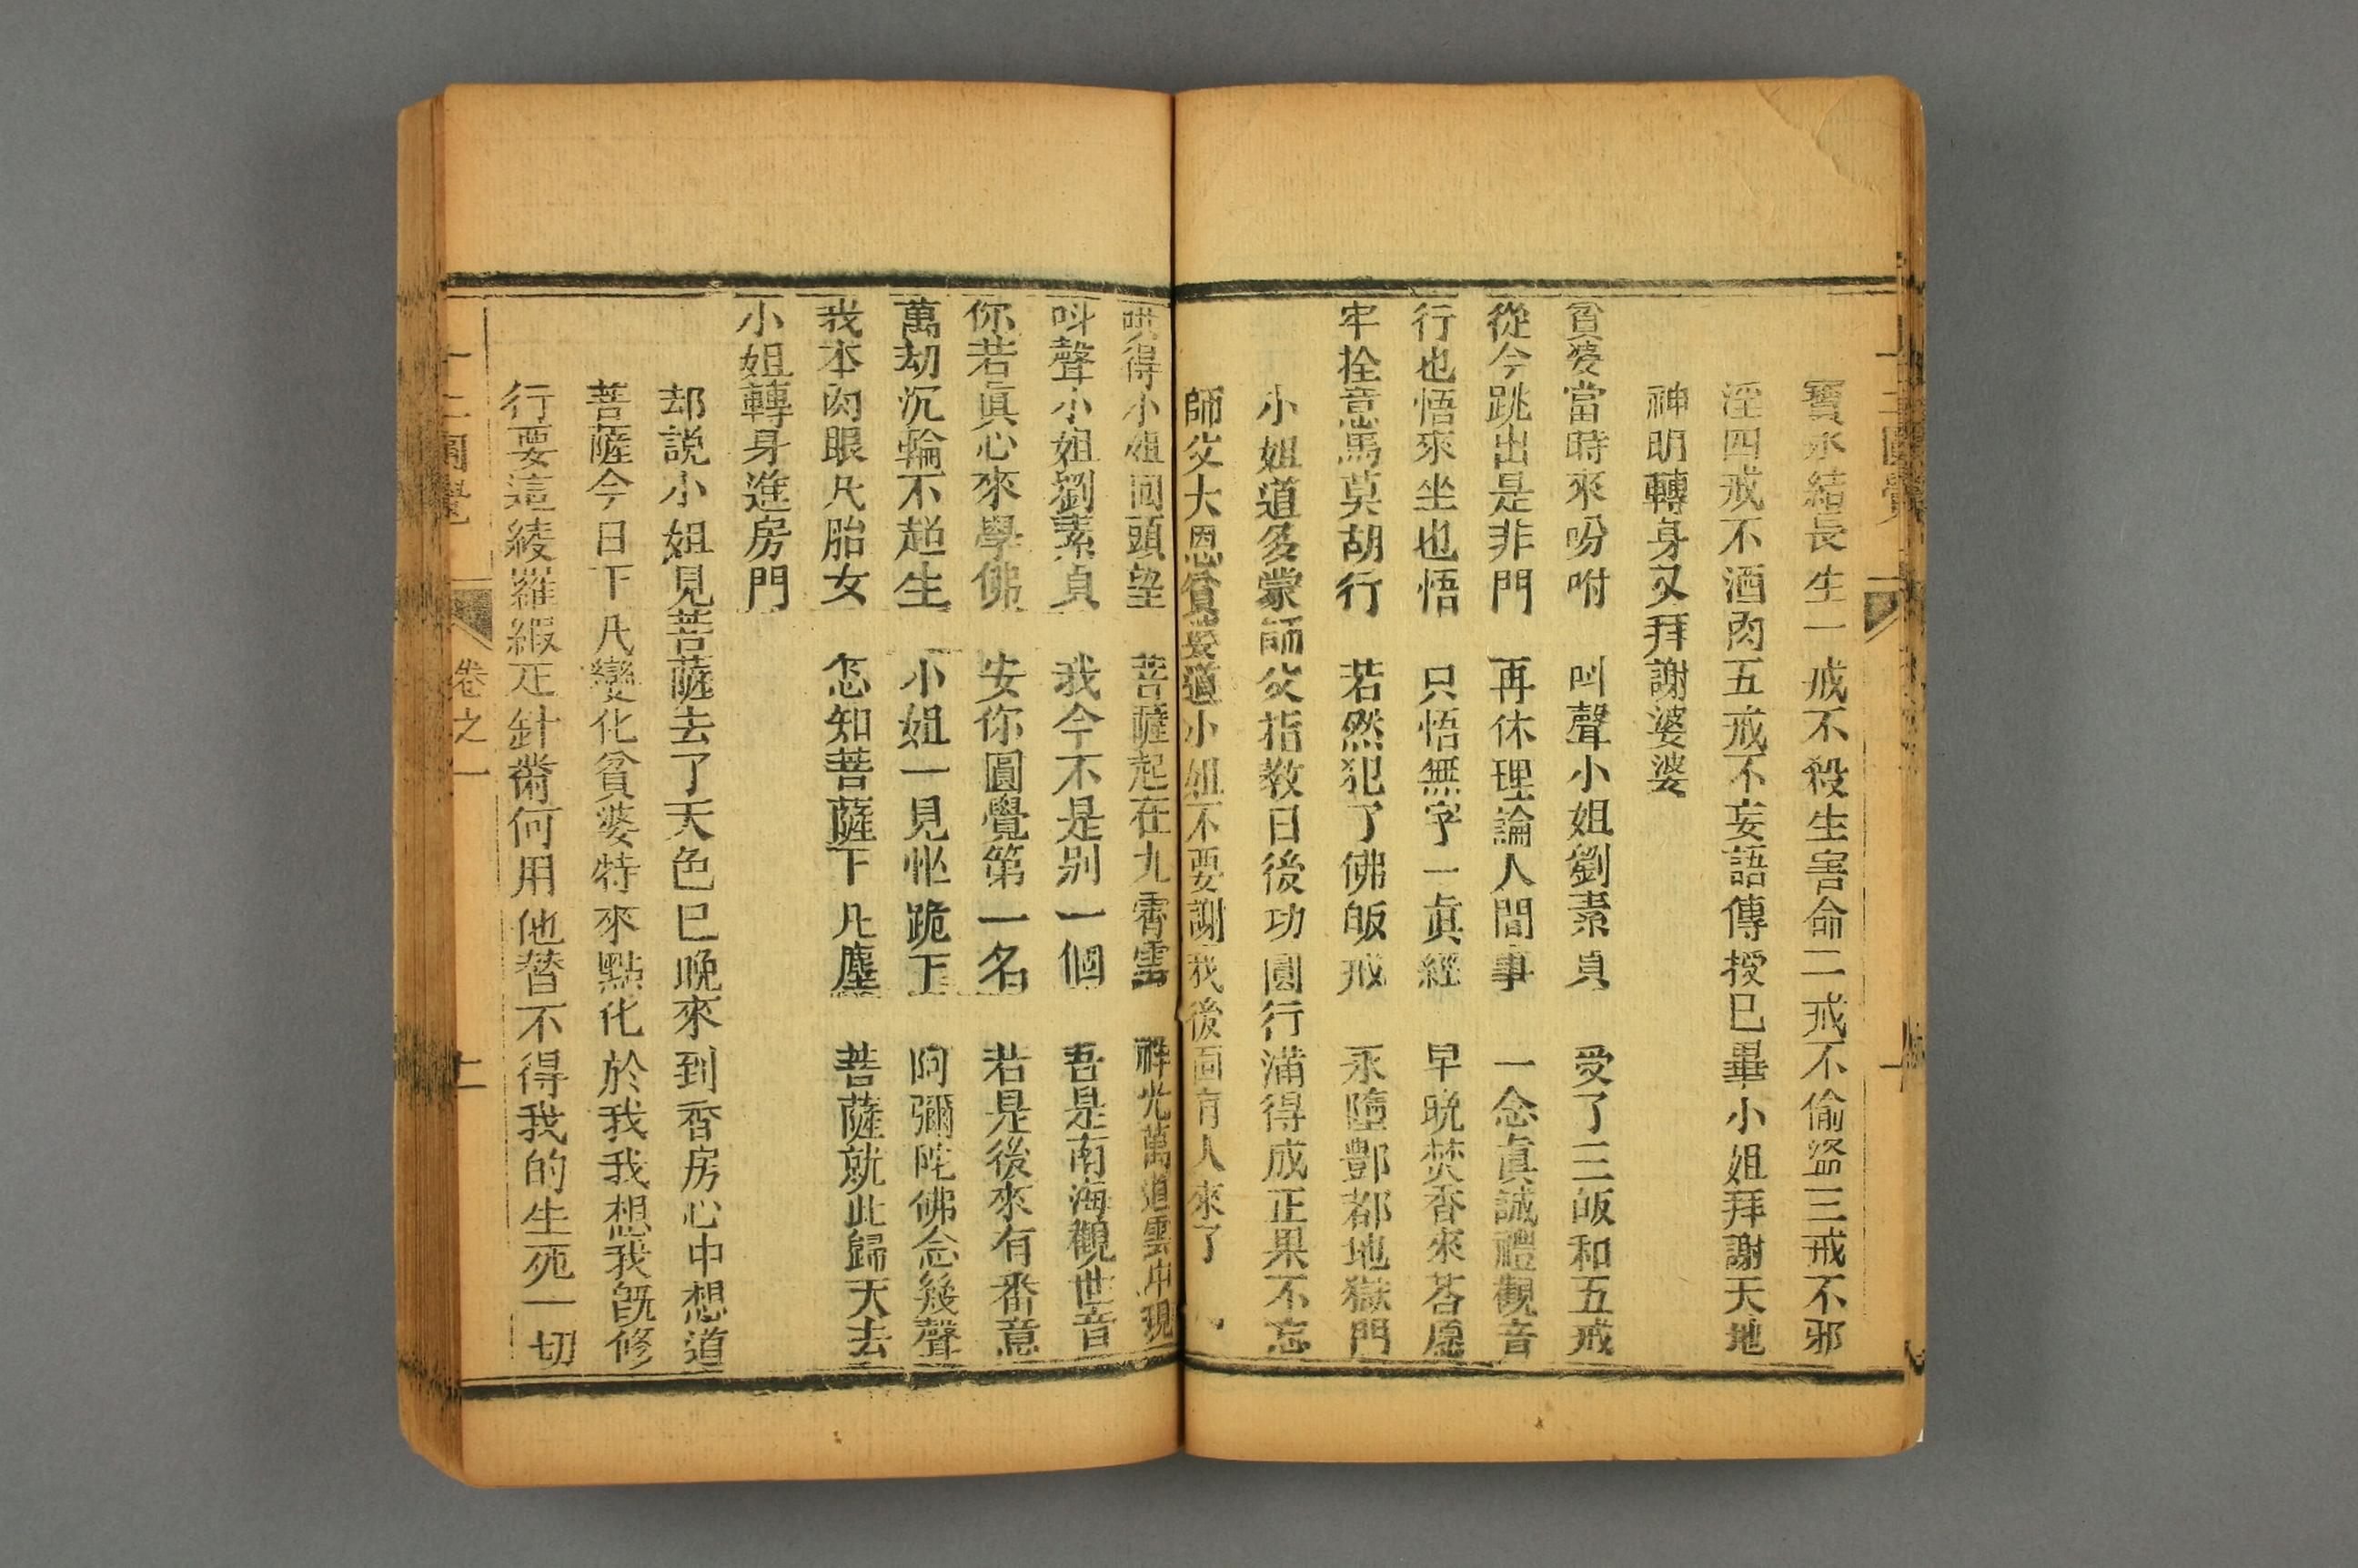 十二圓覺
寳永結長生一戒不殺生害命二戒不偷盜三戒不邪
淫四戒不酒肉五戒不妄語傳授已畢小姐拜謝天地
神明轉身又拜謝婆婆
貧婆當時來吩咐 叫聲小姐劉素貞 受了三皈和五戒
從今跳出是非門 再休理論人間事 一念眞誠禮觀音
行也悟來坐也悟 只悟無字一眞經 早晚焚香來答愿
牢拴意馬莫胡行 若然犯了佛皈戒 永墮酆都地獄門
小姐道多蒙師父指教日後功圓行滿得成正果不忘
師父大恩貧婆道小姐不要謝我後面有人來了
哄得小姐回頭望 菩薩起在九霄雲 祥光萬道雲中現
呌聲小姐劉素貞 我今不是别一個 吾是南海觀世音
你若眞心來學佛 安你圓覺第一名 若是後來有番意
萬劫沉輪不超生 小姐一見忙跪下 阿彌陀佛念幾聲
我本肉眼凡胎女 怎知菩薩下凡塵 菩薩就此歸天去
小姐轉身進房門
却説小姐見菩薩去了天色已晚來到香房心中想道
菩薩今日下凡變化貧婆特來點化於我我想我旣修
行要這綾羅緞疋針黹何用他替不得我的生死一切
十二圓覺 卷之一